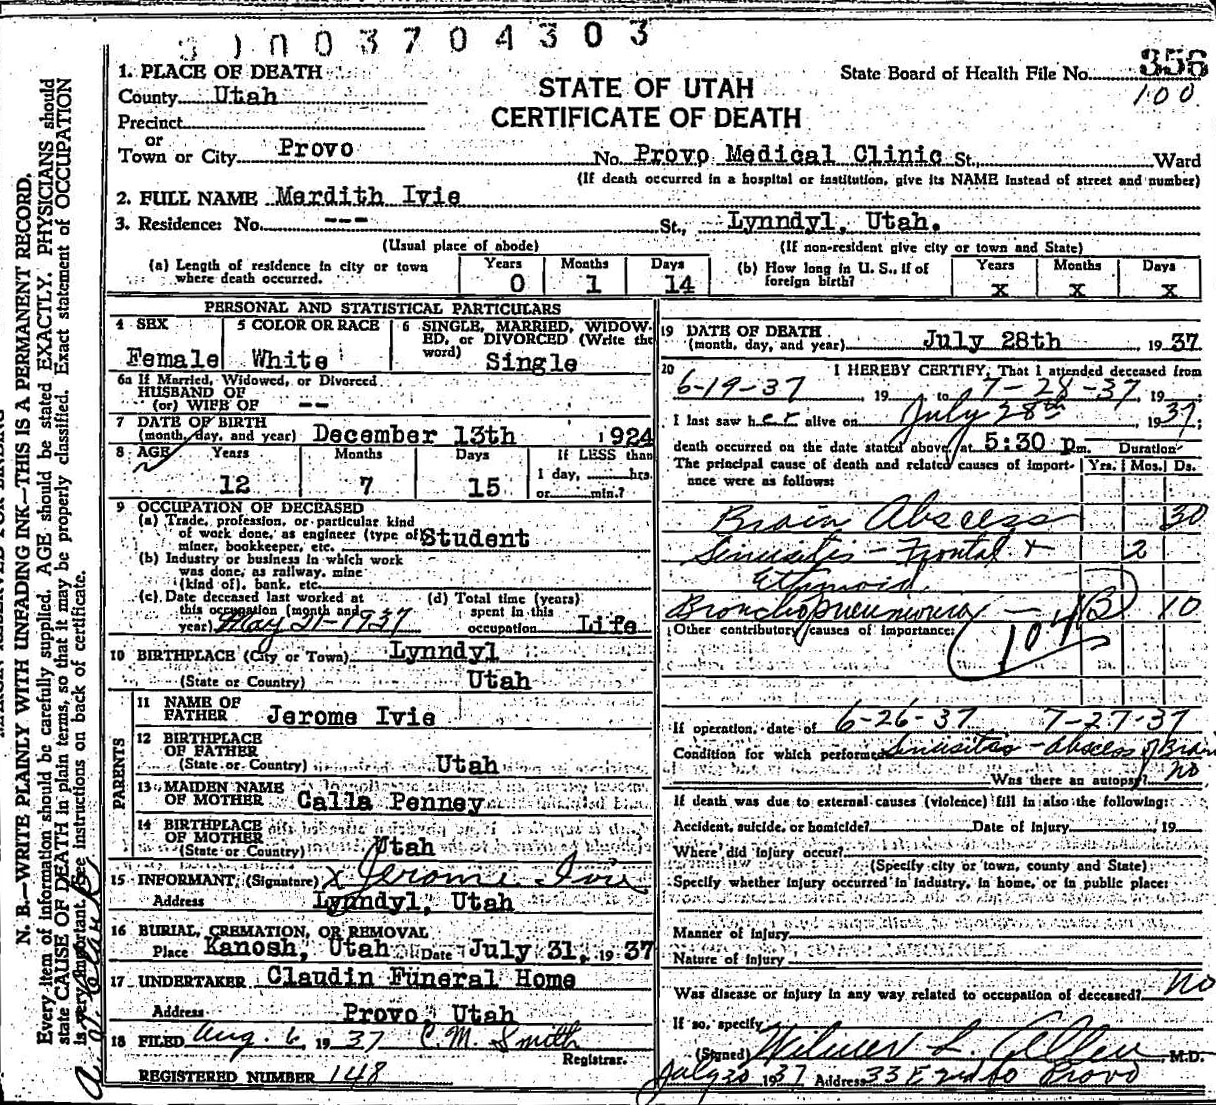 3 0 0 3 7 0 4 3 0 3
1. PLACE OF DEATH
County Utah
Precinct
or
Town or City Provo
STATE OF UTAH
CERTIFICATE OF DEATH
State Board of Health File No. 356
100
No. Provo Medical Clinic St., Ward
(If death occurred in a hospital or institution, give its NAME instead of street and number)
2. FULL NAME Merdith Ivie
3. Residence: No. --- St., Lynndyl, Utah.
(Usual place of abode) (If non-resident give city or town and State)
(a) Length of residence in city or town where death occurred. Years 0 Months 1 Days 14
(b) How long in U. S., if of foreign birth? Years x Months x Days x
PERSONAL AND STATISTICAL PARTICULARS
4 SEX Female
5 COLOR OR RACE White
6 SINGLE, MARRIED, WIDOWED, or DIVORCED (Write the word) Single
6a If Married, Widowed, or Divorced
HUSBAND OF
(or) WIFE OF --
7 DATE OF BIRTH
(month, day, and year) December 13th 1924
8 AGE Years 12 Months 7 Days 15
If LESS than
1 day, hrs.
or min.?
9 OCCUPATION OF DECEASED
(a) Trade, profession, or particular kind
of work done, as engineer (type of Student
miner, bookkeeper, etc.
(b) Industry or business in which work
was done, as railway, mine
(kind of), bank, etc.
(c) Date deceased last worked at
this occupation (month and
year) May 21-1937
(d) Total time (years)
spent in this
occupation Life
10 BIRTHPLACE (City or Town) Lynndyl
(State or Country) Utah
PARENTS
11 NAME OF
FATHER Jerome Ivie
12 BIRTHPLACE
OF FATHER
(State or Country) Utah
13 MAIDEN NAME
OF MOTHER Calla Penney
14 BIRTHPLACE
OF MOTHER
(State or Country) Utah
15 INFORMANT, (Signature) x Jerome Ivie
Address Lynndyl, Utah
16 BURIAL, CREMATION, OR REMOVAL
Place Kanosh, Utah Date July 31, 1937
17 UNDERTAKER Claudin Funeral Home
Address Provo Utah
18 FILED Aug. 6, 1937 C. M. Smith
Registrar.
REGISTERED NUMBER 148
19 DATE OF DEATH
(month, day, and year) July 28th, 1937
20 I HEREBY CERTIFY, That I attended deceased from
6-19-37, 19 to 7-28-37, 19 ;
I last saw her alive on July 28th, 1937;
death occurred on the date stated above, at 5:30 p.m. Duration
The principal cause of death and related causes of importance were as follows: Yrs. Mos. Ds.
Brain Abscess 30
Sinusitis - Frontal + 2
Ethmoid
Bronchopneumonia 10
107 B
Other contributory causes of importance:
If operation, date of 6-26-37 7-27-37
Condition for which performed Sinusitis - abscess of Brain
Was there an autopsy? no
If death was due to external causes (violence) fill in also the following:
Accident, suicide, or homicide? Date of Injury , 19
Where did injury occur?
(Specify city or town, county and State)
Specify whether injury occurred in industry, in home, or in public place:
Manner of injury
Nature of injury
Was disease or injury in any way related to occupation of deceased? no
If so, specify
(Signed) Wilmer L. Allen, M.D.
July 30 1937 Address 33 E Provo
N. B.—WRITE PLAINLY WITH UNFADING INK—THIS IS A PERMANENT RECORD.
Every item of information should be carefully supplied. AGE should be stated EXACTLY. PHYSICIANS should
state CAUSE OF DEATH in plain terms, so that it may be properly classified. Exact statement of OCCUPATION
is very important. See instructions on back of certificate.